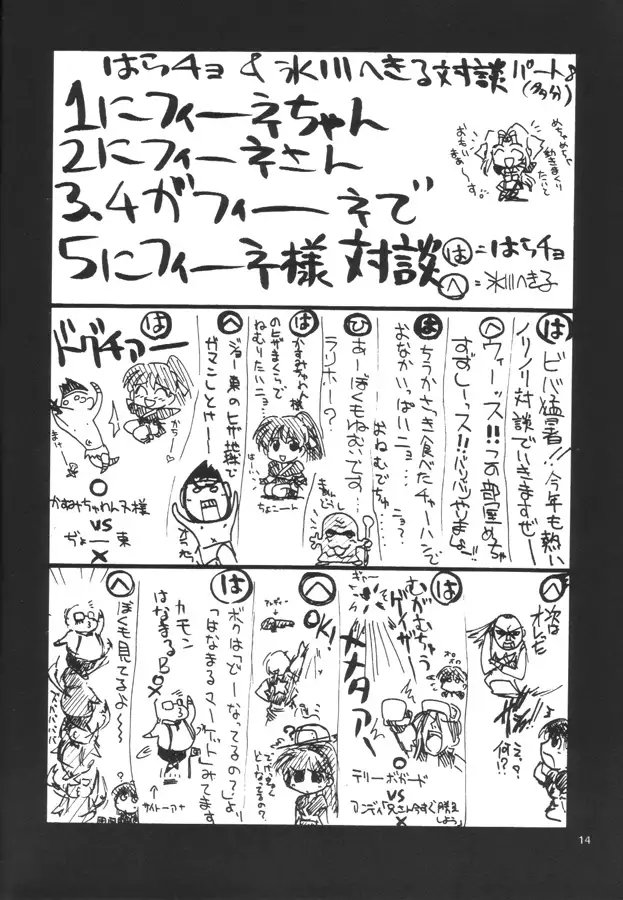 はらチョ & 氷川へきる対談パート8
(多分)
1にフィーネちゃん
2にフィーネさん
3、4がフィーネで
5にフィーネ様対談
めちゃめちゃ
動きまくり
たいで
おもいまぁーす。
は=はらチョ
へ=氷川へき子
は ビバ猛暑!!今年も熱い
ノリノリ対談でいきますぜー
へ ウィーッス!!この部屋めちゃ
すずしーッス!!バリバリやりまひょ
は ちうかさっき食べたチャーハンで
おなかいっぱいニョ…
…おねむでちゅ…ニョ?
ひ あーぼくもねむいです…
ラリホー?
は かすみちゃん様
のヒザまくらで
ねむりたいニ〜
ちょこーん
へ ジョー東のヒザ地獄で
ガマンしとや〜
は ドグチァー
かすみちゃわん人様
○
VS
ぢょー東
×
へ 次は
オレだ
ダンッ
えっ?
何!?
は むがむちゅう
ゲイザー
ギャー
○
テリーボガード
VS
アンディ「兄さん今すぐ服を
しよう」
×
へ OK!
メタァー
は ボクは「どーなってるの?」より
「はなまるマーケット」みてます
へ カモン
はなまるB○×
↑
サイトーアナ
ぼくも見てるよ〜〜
14